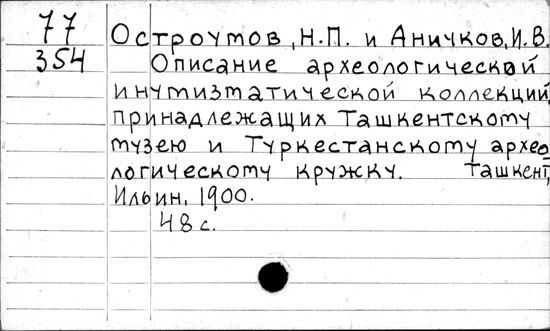 77
354
Остроумов, Н.П. и Аничков, И.В.
Описание археологической
и нумизматической коллекций
принадлежащих Ташкентскому
музею и Туркестанскому архео-
логическому кружку. Ташкент,
Ильин, 1900.
48 с.